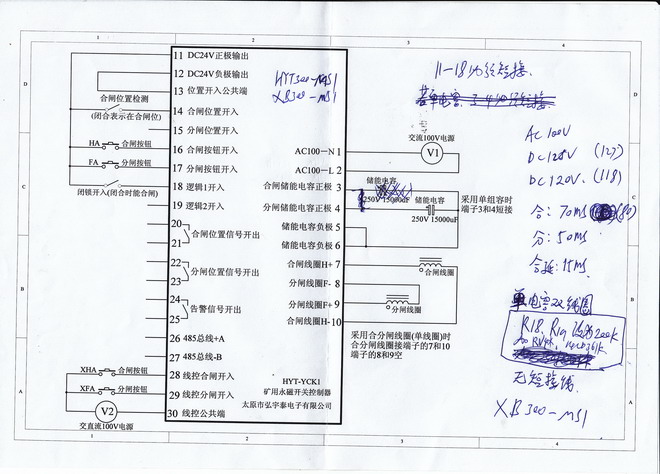 1 2 3 4
D
C
B
A
11 DC24V正极输出
12 DC24V负极输出
13 位置开入公共端
14 合闸位置开入
15 分闸位置开入
16 合闸按钮开入
17 分闸按钮开入
18 逻辑1开入
19 逻辑2开入
20
合闸位置信号开出
21
22
分闸位置信号开出
23
24
告警信号开出
25
26 485总线+A
27 485总线-B
28 线控合闸开入
29 线控分闸开入
30 线控公共端
合闸位置检测
(闭合表示在合闸位)
HA 合闸按钮
FA 分闸按钮
闭锁开入(闭合时能合闸)
XHA 合闸按钮
XFA 分闸按钮
V2
交直流100V电源
HYT300-MS1
XB300-MS1
AC100-N 1
AC100-L 2
合闸储能电容正极 3
分闸储能电容正极 4
储能电容负极 5
储能电容负极 6
合闸线圈H+ 7
分闸线圈F- 8
分闸线圈F+ 9
合闸线圈H- 10
HYT-YCK1
矿用永磁开关控制器
太原市弘宇泰电子有限公司
交流100V电源
V1
储能电容
250V 15000uF
储能电容
250V 15000uF
采用单组容时
端子3和4短接
合闸线圈
分闸线圈
采用合分闸线圈(单线圈)时
合分闸线圈接端子的7和10
端子的8和9空
11-18必须短接.
AC 100V
DC 128V (127)
DC 120V. (118)
合: 70ms (80)
分: 50ms
合延: 15ms
单电容双线圈
R18、R19 改为200k
无短接线
XB300-MS1
1 2 3 4